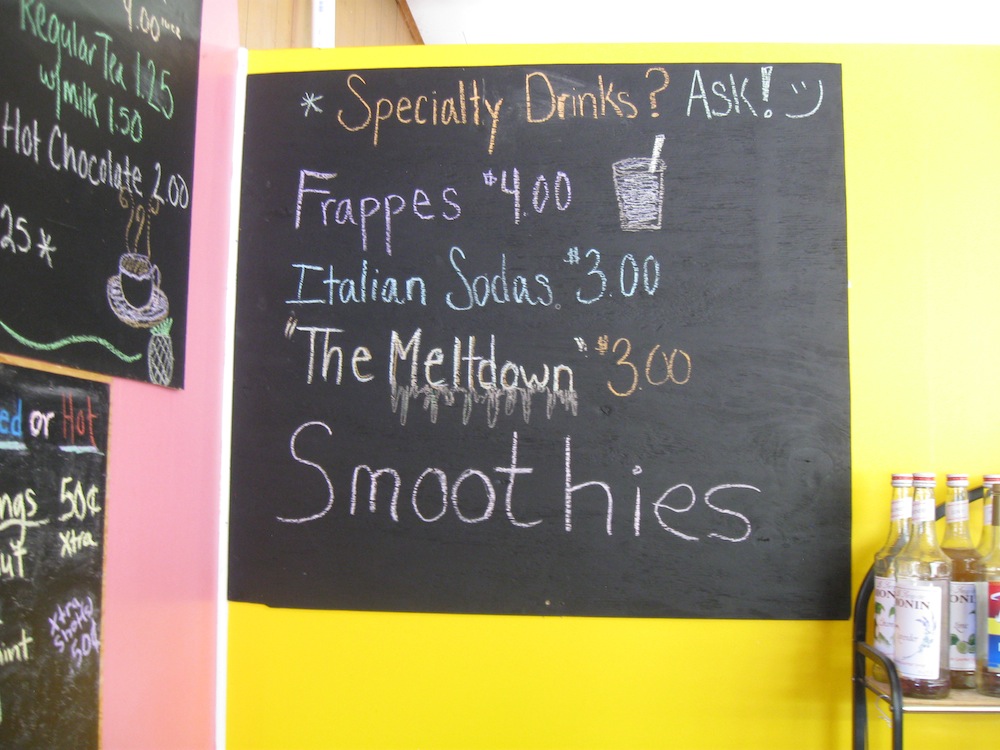 4.00
Regular Tea 1.25
w/milk 1.50
Hot Chocolate 2.00
25*
or Hot
50¢
xtra
xtra
shot(s)
50¢
* Specialty Drinks? Ask! :)
Frappes $4.00
Italian Sodas $3.00
"The Meltdown" $3.00
Smoothies
MONIN